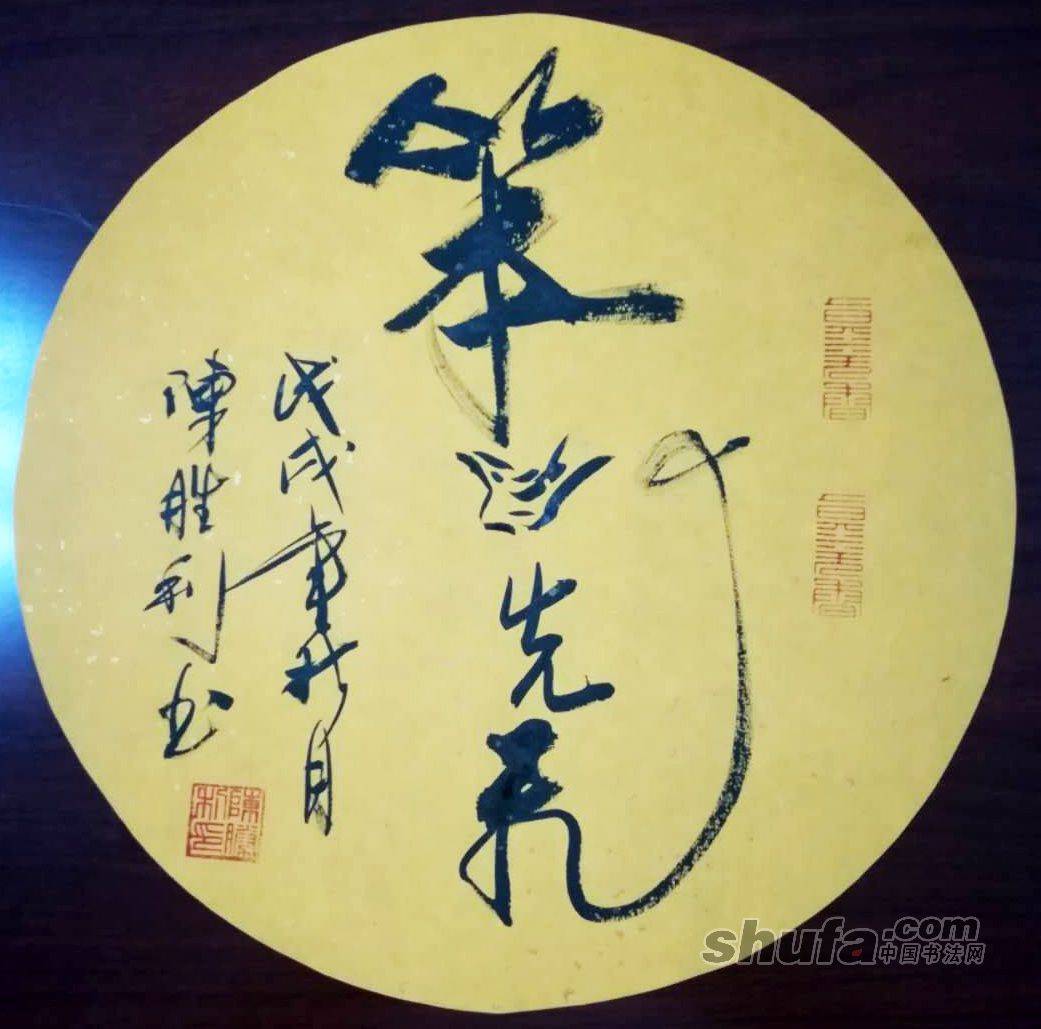 笨鸟先飞
戊戌年秋月
陳胜利书
陳勝利印
shufa.com
中国书法网